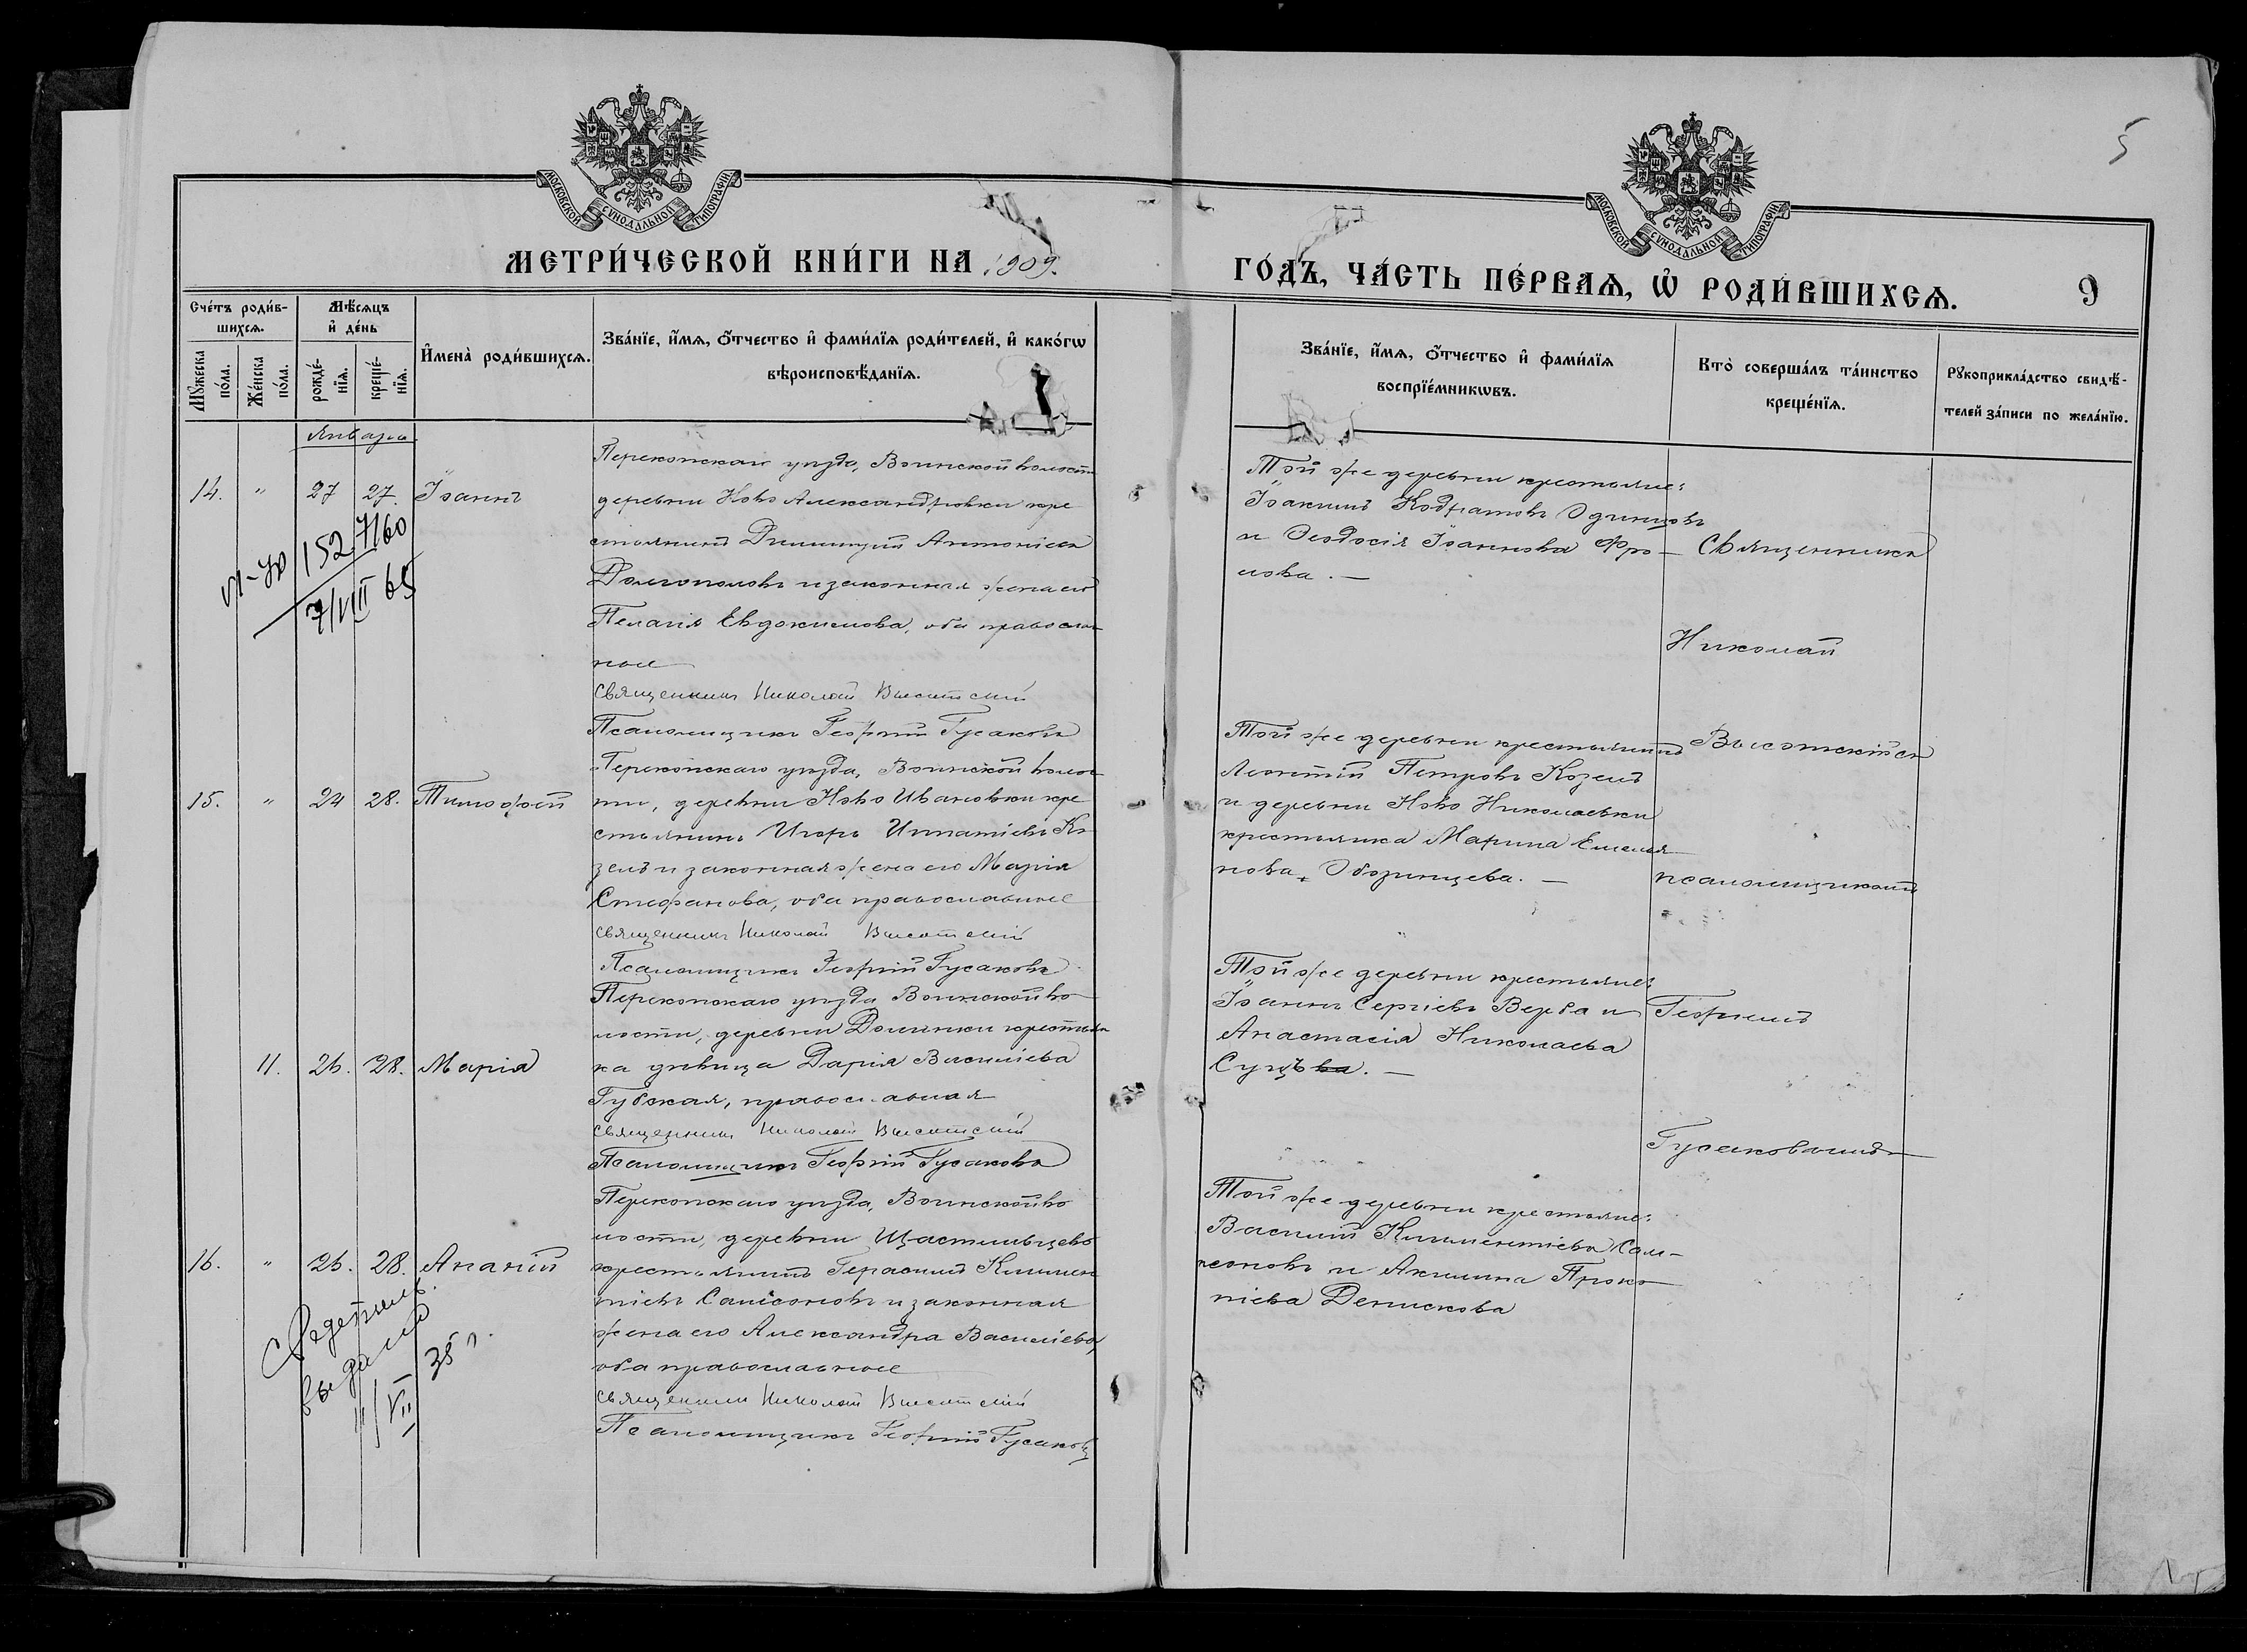 5
МОСКОВСКОЙ СѴНОДАЛЬНОЙ ТИПОГРАФІИ
МОСКОВСКОЙ СѴНОДАЛЬНОЙ ТИПОГРАФІИ
МЕТРИ́ЧЕСКОЙ КНИ́ГИ НА 1909.
ГО́ДЪ, ЧА́СТЬ ПЕ́РВАѦ, Ѡ҆ РОДИ́ВШИХСѦ.
9
Сче́тъ роди́вшихсѧ.
Мꙋ́жеска по́ла.
Же́нска по́ла.
Мѣ́сѧцъ и҆ де́нь
рожде́нїѧ.
креще́нїѧ.
И҆мена̀ роди́вшихсѧ.
Зва́нїе, и҆́мѧ, ѻ҆́тчество и҆ фами́лїѧ роди́телей, и҆ како́гѡ
вѣроисповѣ́данїѧ.
Зва́нїе, и҆́мѧ, ѻ҆́тчество и҆ фами́лїѧ
воспрїе́мникѡвъ.
Кто̀ соверша́лъ та́инство
креще́нїѧ.
Рꙋкоприкла́дство свидѣ́-
телей за́писи по жела́нїю.
Января
14. " 27 27. Іоаннъ
152 7160
7/VIII 65
Перекопскаго уѣзда, Воинской волости
деревни Ново Александровки кре
стьянинъ Димитрій Антоніевъ
Долгополовъ и законная жена его
Пелагія Евдокимова, оба православ
ные
Священникъ Николай Высотскій
Псаломщикъ Георгій Гусаковъ
Той же деревни крестьяне:
Іоакимъ Кодратовъ Одинцовъ
и Ѳеодосія Іоаннова Фро-
лова. —
Священникъ
Николай
Высотскій съ
псаломщикомъ
Георгіемъ
Гусаковымъ
15. " 24 28. Тимофей
Перекопскаго уѣзда, Воинской волос
ти, деревни Ново Ивановки кре
стьянинъ Игорь Игнатіевъ Ко
зелъ и законная жена его Марія
Стефанова, оба православные
Священникъ Николай Высотскій
Псаломщикъ Георгій Гусаковъ
Той же деревни крестьянинъ
Леонтій Петровъ Козелъ
и деревни Ново Николаевки
крестьянка Марина Емелья
нова Оборинцева. —
11. 26. 28. Марія
Перекопскаго уѣзда Воинской во
лости, деревни Долинки крестьян
ка дѣвица Дарія Василіева
Губская, православная
Священникъ Николай Высотскій
Псаломщикъ Георгій Гусаковъ
Той же деревни крестьяне:
Іоаннъ Сергіевъ Верба и
Анастасія Николаева
16. " 26. 28. Ананій
выдано
11/VII 35 г.
Перекопскаго уѣзда, Воинской во
лости, деревни Щастливцево
крестьянинъ Герасимъ Климен
тіевъ Самсоновъ и законная
жена его Александра Василіева,
оба православные
Священникъ Николай Высотскій
Псаломщикъ Георгій Гусаковъ
Той же деревни крестьяне:
Василій Климентіевъ Сам-
соновъ и Акилина Проко
піева Денискова